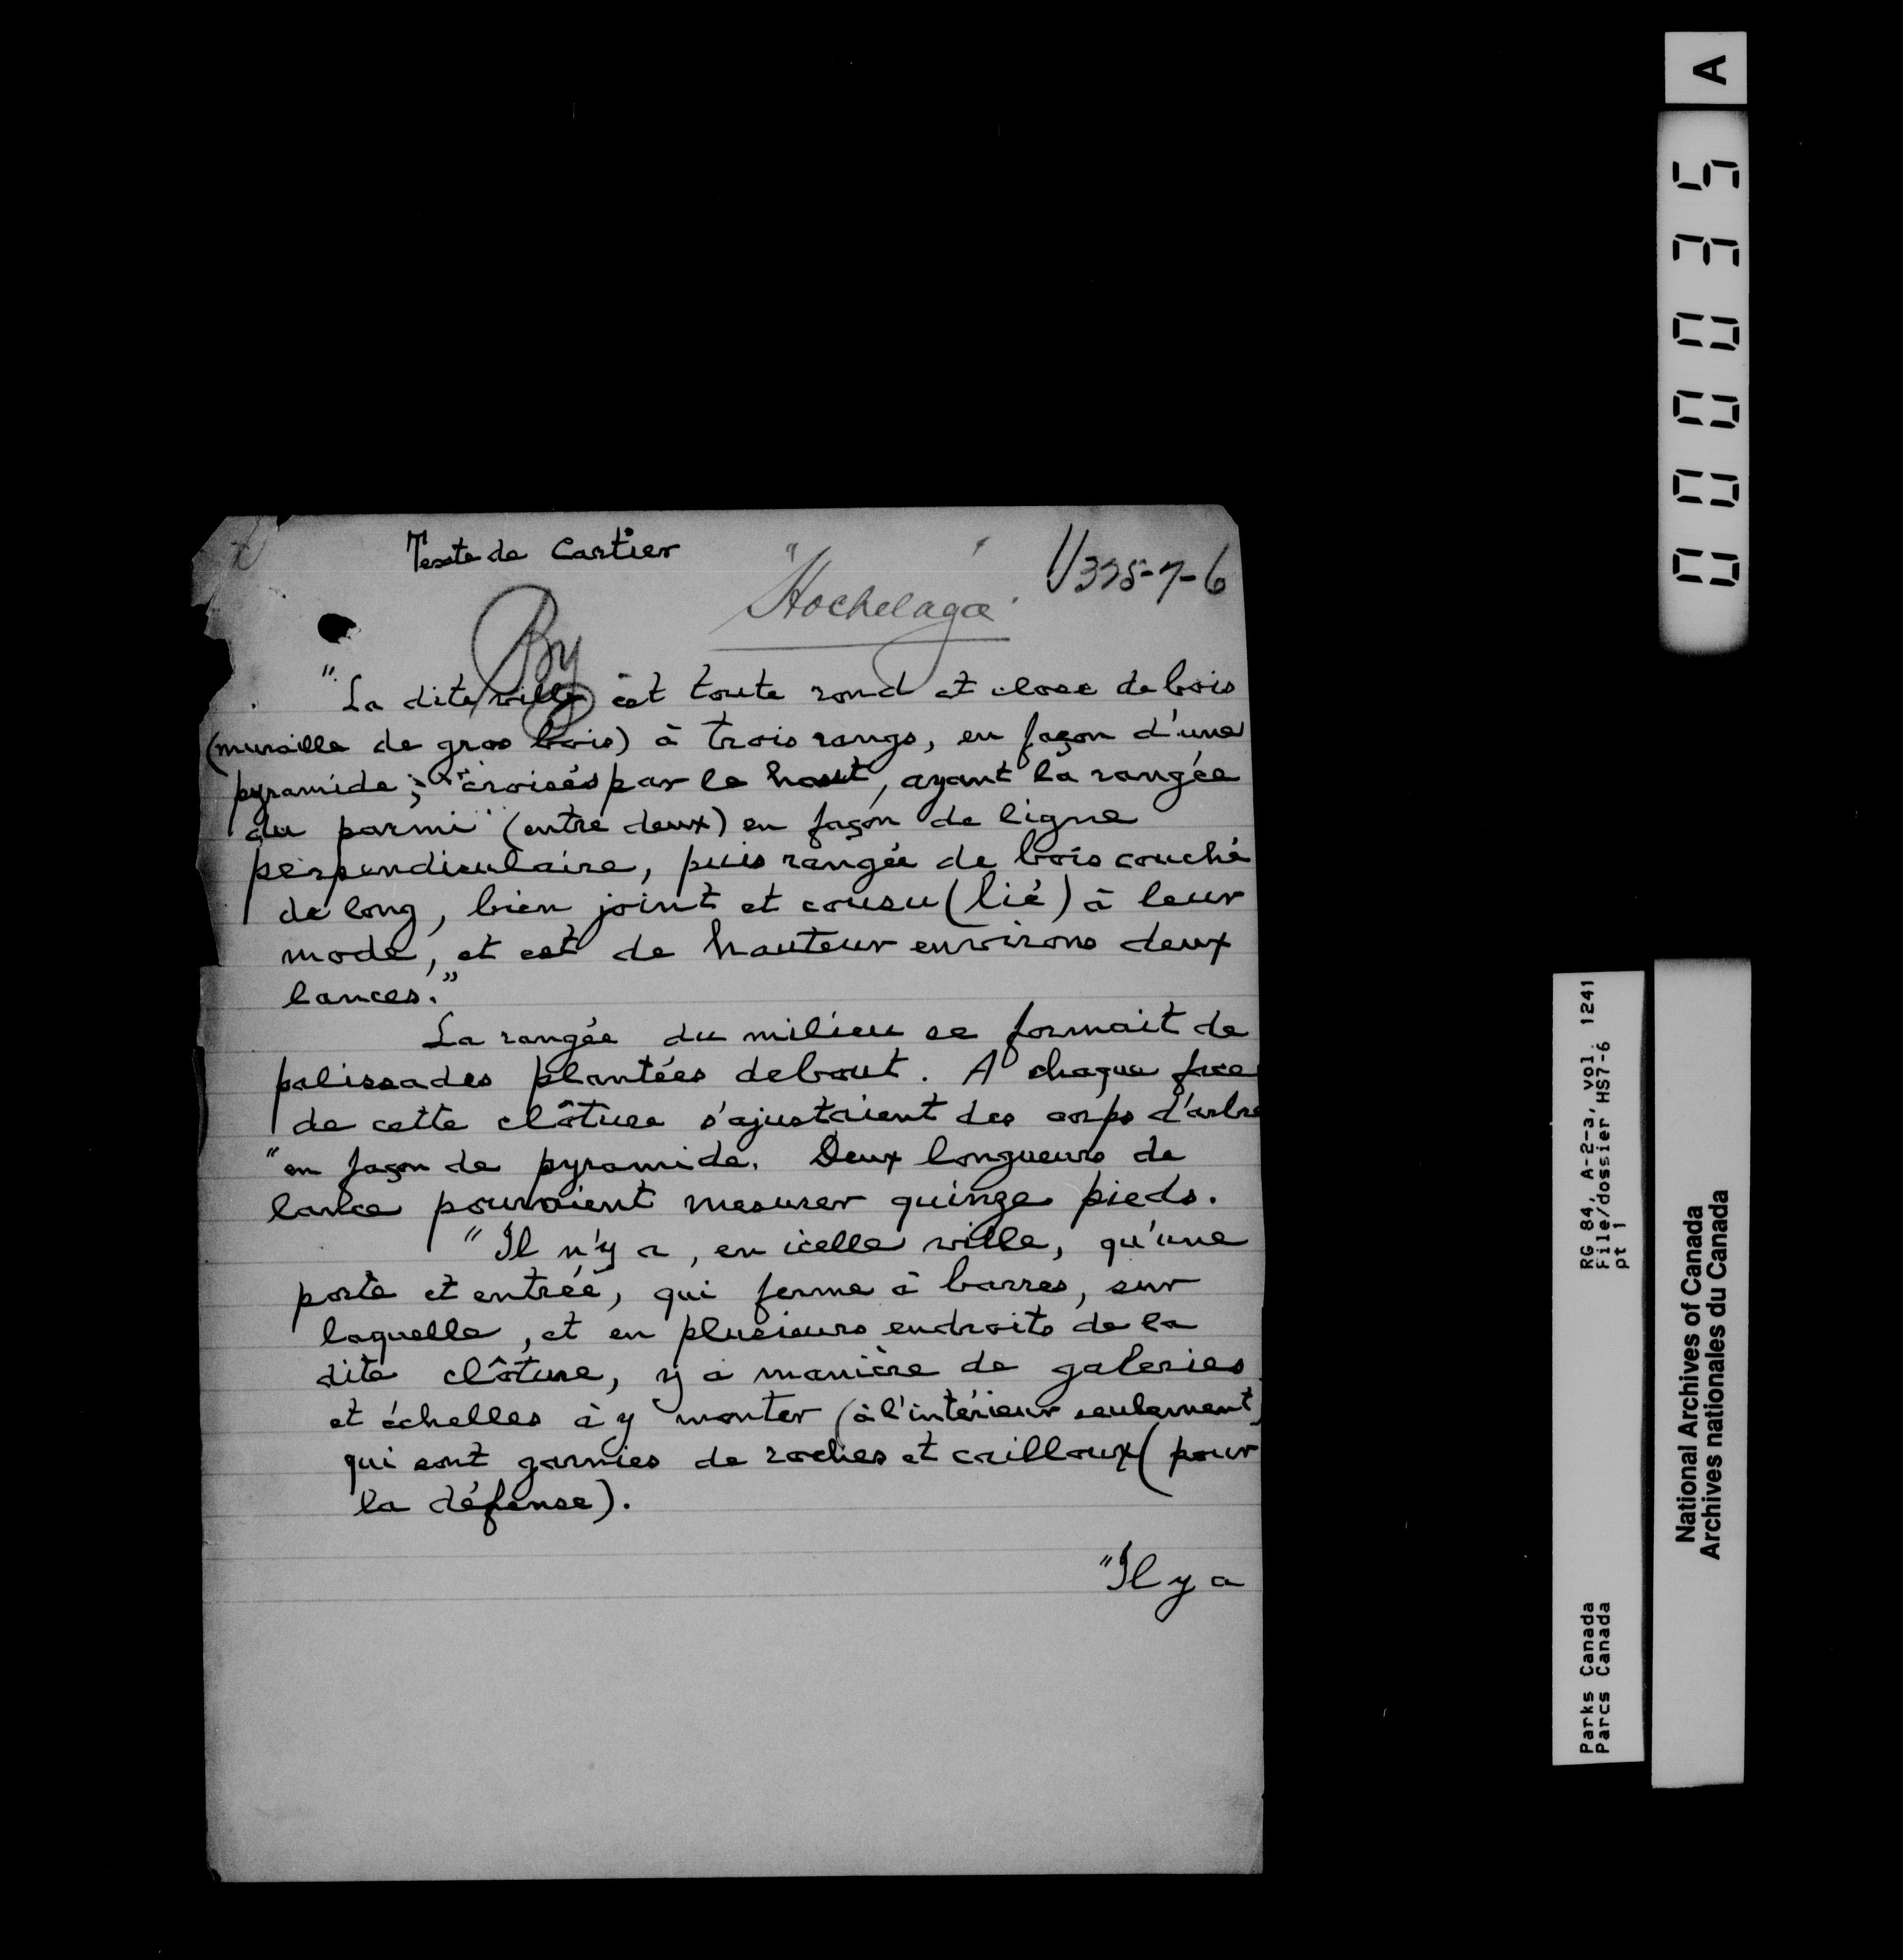 Texte de Cartier
"Hochelaga"
1/325-7-6
By
"La dite ville est toute rond et close de bois
(muraille de gros bois) à trois rangs, en façon d'une
pyramide; croisés par le haut, ayant la rangée
du parmi (entre deux) en façon de ligne
perpendiculaire, puis rangée de bois couché
de long, bien joint et cousu (lié) à leur
mode, et est de hauteur environs deux
lances."
La rangée du milieu se formait de
palissades plantées debout. A chaque face
de cette clôture s'ajustaient des corps d'arbre
"en façon de pyramide. Deux longueurs de
lance pouvaient mesurer quinze pieds.
"Il n'y a, en icelle ville, qu'une
porte et entrée, qui ferme à barres, sur
laquelle, et en plusieurs endroits de la
dite clôture, y a manière de galeries
et échelles à y monter (à l'intérieur seulement)
qui sont garnies de roches et cailloux (pour
la défense).
"Il y a
A
000035
Parks Canada
Parcs Canada
RG 84, A-2-a, vol. 1241
File/dossier HS7-6
pt 1
National Archives of Canada
Archives nationales du Canada